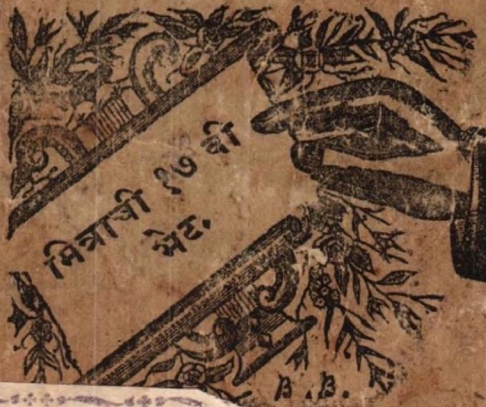 मित्राची १७ वी
भेट.
B.B.